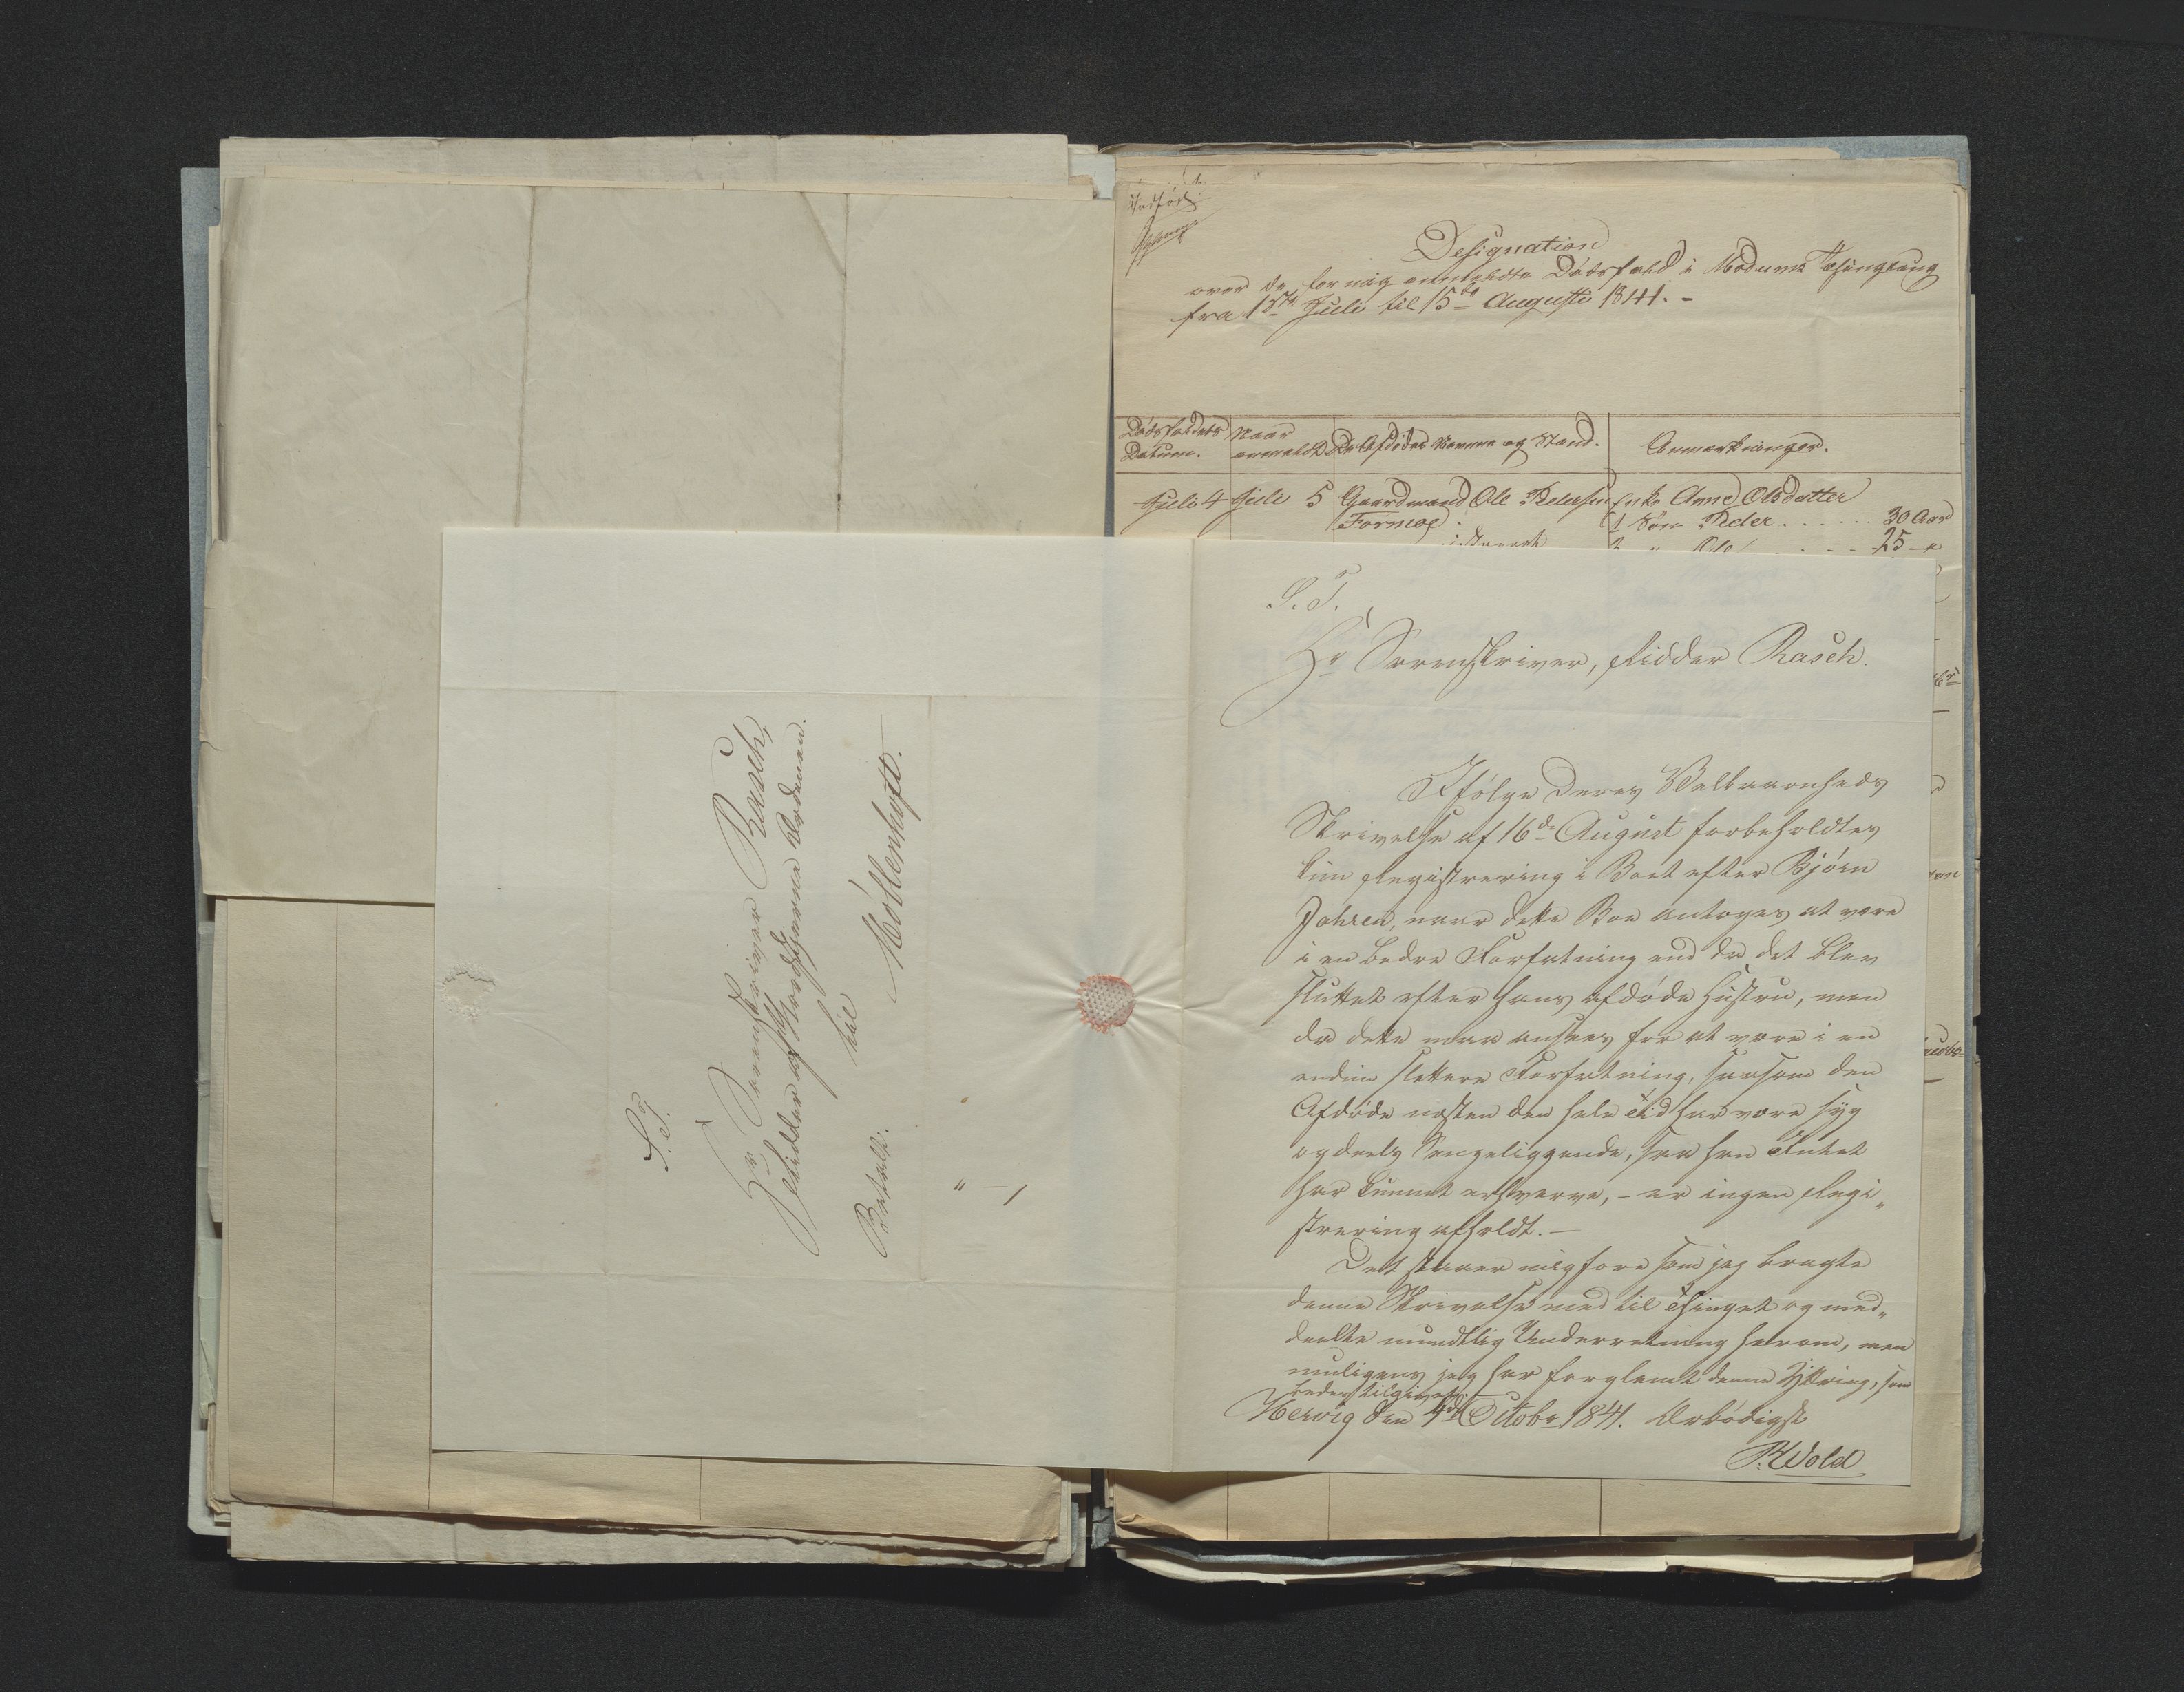 Indført
Designation
over de for mig anmeldte Dødsfald i Modums Thinglaug
fra 1ste Juli til 15de Augusti 1841. -
Dødsfaldets Datum.
Naar anmeldt
De Afdødes Navne og Stand.
Anmærkninger.
Juli 4 Juli 5 Gaardmand Ole Pedersen Enke Anne Olsdatter
Formoe. 1 Søn Peder . . . . . . 30 Aar
2 " Ole . . . . 25 -"
S. T.
Hr Sorenskriver, Ridder Rasch.
Ifølge Deres Velbaarenheds
Skrivelse af 16de August forbeholdtes
kun Registrering i Boet efter Bjørn
Johren, naar dette Boe antoges at være
i en bedre Forfatning end da det blev
sluttet efter hans afdøde Hustru, men
da dette maa ansees for at være i en
endnu slettere Forfatning, saasom den
Afdøde næsten den hele Tid har være syg
og deels Sengeliggende, saa han Intet
har kunnet erhverve, - er ingen Regi„
strering afholdt. -
Det staaer mig fore som jeg bragte
denne Skrivelse med til Thinget og med„
deelte mundtlig Underretning herom, men
muligens jeg har forglemt denne Yttring, som
bedes tilgivet. -
Hervig den 4de Octobr 1841. Ærbødigst
P. Wold
S. T.
Hr Sorenskriver Rasch,
Ridder af Nordstjerne Ordenen.
til
Betalt. Møllenhoff.
" - 1